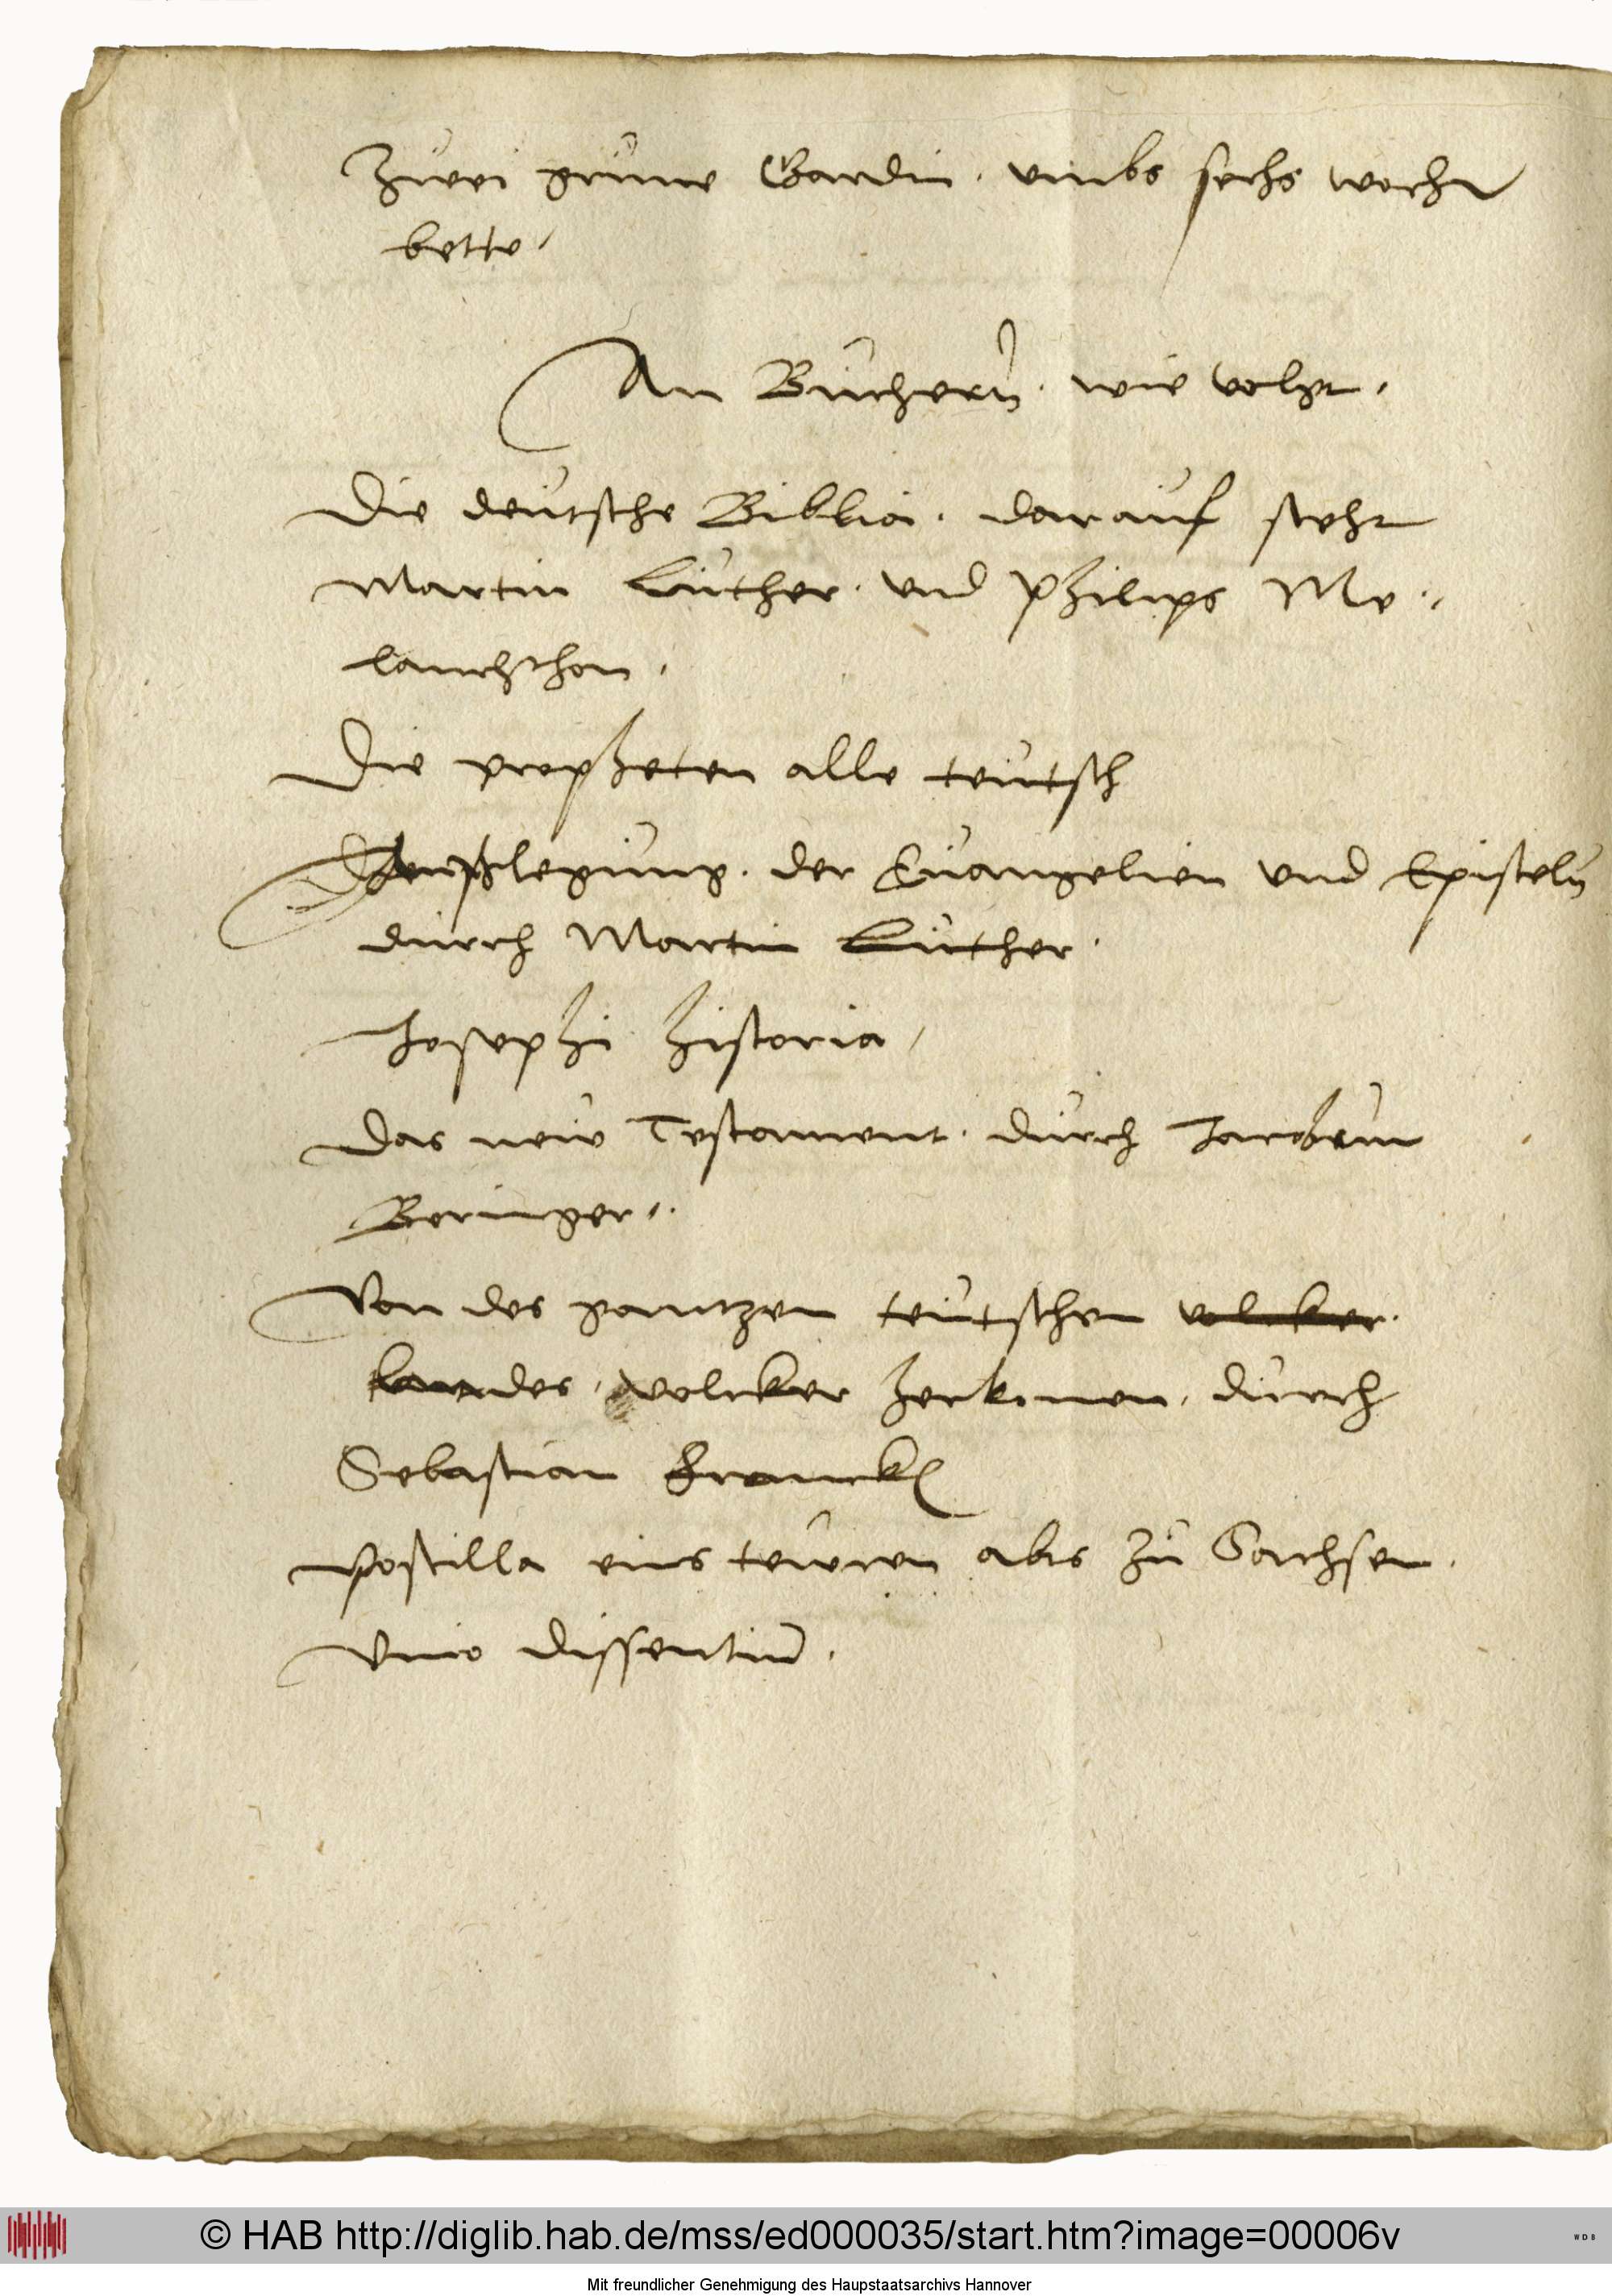 Zwei grune Gardin · umbs sechs woch
bette ·
An Büchern · wie volgt ·
Die deutsche Biblia · darauf steht
Martin Luther · und Philips Me ·,
lanchthon ,
Die propheten alle teutsch
Außlegung · der Euangelien und Episteln
durch Martin Luther ·
Josephi historia ,
Das new Testament · durch Jacobum
Beringer , ·
Von des gantzen teutschen volcker ·
landes , volcker herkomen , durch
Sebastian Franck
Postilla eins tewren abts zu Sachsen ·
Unio dissentium ·
© HAB http://diglib.hab.de/mss/ed000035/start.htm?image=00006v
WDB
Mit freundlicher Genehmigung des Haupstaatsarchivs Hannover